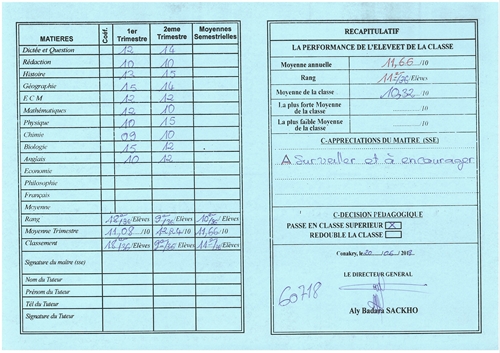 MATIERES Coéf. 1er Trimestre 2eme Trimestre Moyennes Semestrielles
Dictée et Question 12 14
Rédaction 10 10
Histoire 13 15
Géographie 15 14
E.C M 12 12
Mathématiques 12 10
Physique 10 15
Chimie 09 10
Biologie 15 12
Anglais 10 12
Economie
Philosophie
Français
Moyenne
Rang /Elèves /Elèves /Elèves
Moyenne Trimestre 11,08 /10 /10 11,66 /10
Classement /Elèves /Elèves /Elèves
Signature du maître (sse)
Nom du Tuteur
Prénom du Tuteur
Tél du Tuteur
Signature du Tuteur
RECAPITULATIF
LA PERFORMANCE DE L'ELEVEET DE LA CLASSE
Moyenne annuelle 11,66 /10
Rang /Elèves
Moyenne de la classe 10,32 /10
La plus forte Moyenne de la classe /10
La plus faible Moyenne de la classe /10
C-APPRECIATIONS DU MAITRE (SSE)
A surveiller et à encourager
C-DECISION PEDAGOGIQUE
PASSE EN CLASSE SUPERIEUR X
REDOUBLE LA CLASSE
Conakry, le 20 /06/
LE DIRECTEUR GENERAL
60718
Aly Badara SACKHO